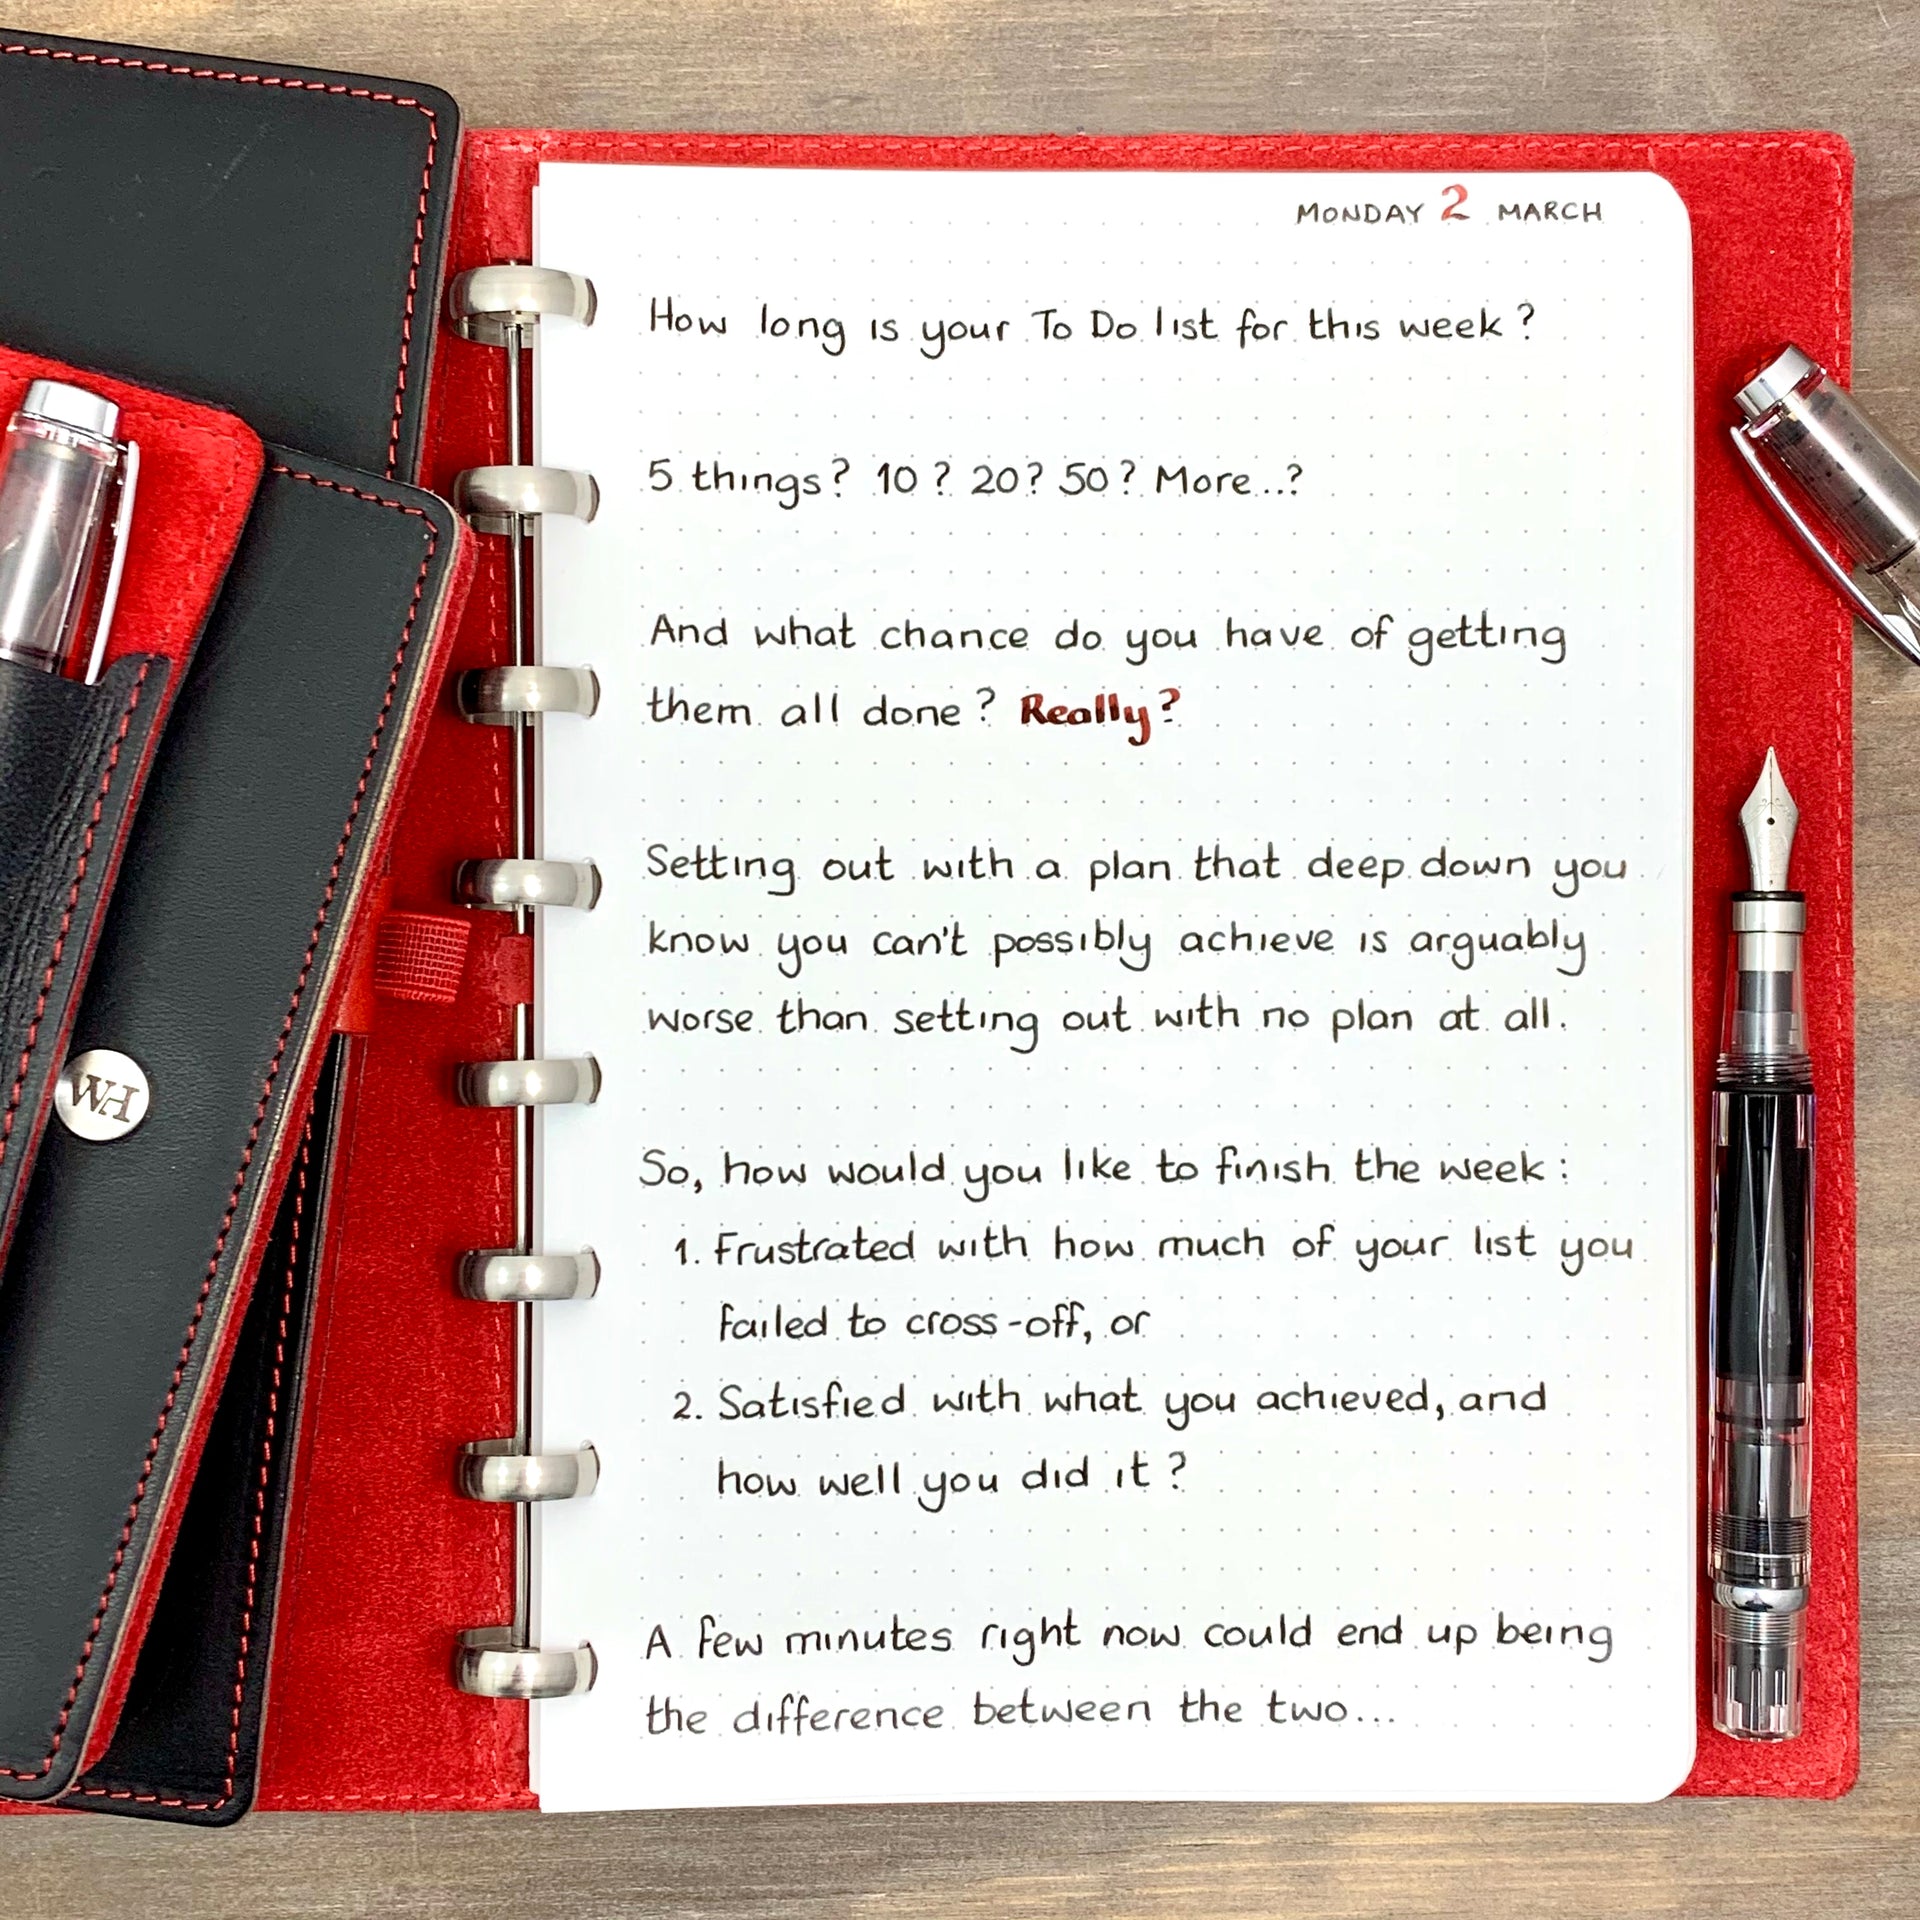 MONDAY 2 MARCH
How long is your To Do list for this week?
5 things? 10? 20? 50? More...?
And what chance do you have of getting
them all done? Really?
Setting out with a plan that deep down you
know you can't possibly achieve is arguably
worse than setting out with no plan at all.
So, how would you like to finish the week:
1. Frustrated with how much of your list you
failed to cross-off, or
2. Satisfied with what you achieved, and
how well you did it?
A few minutes right now could end up being
the difference between the two...
WH